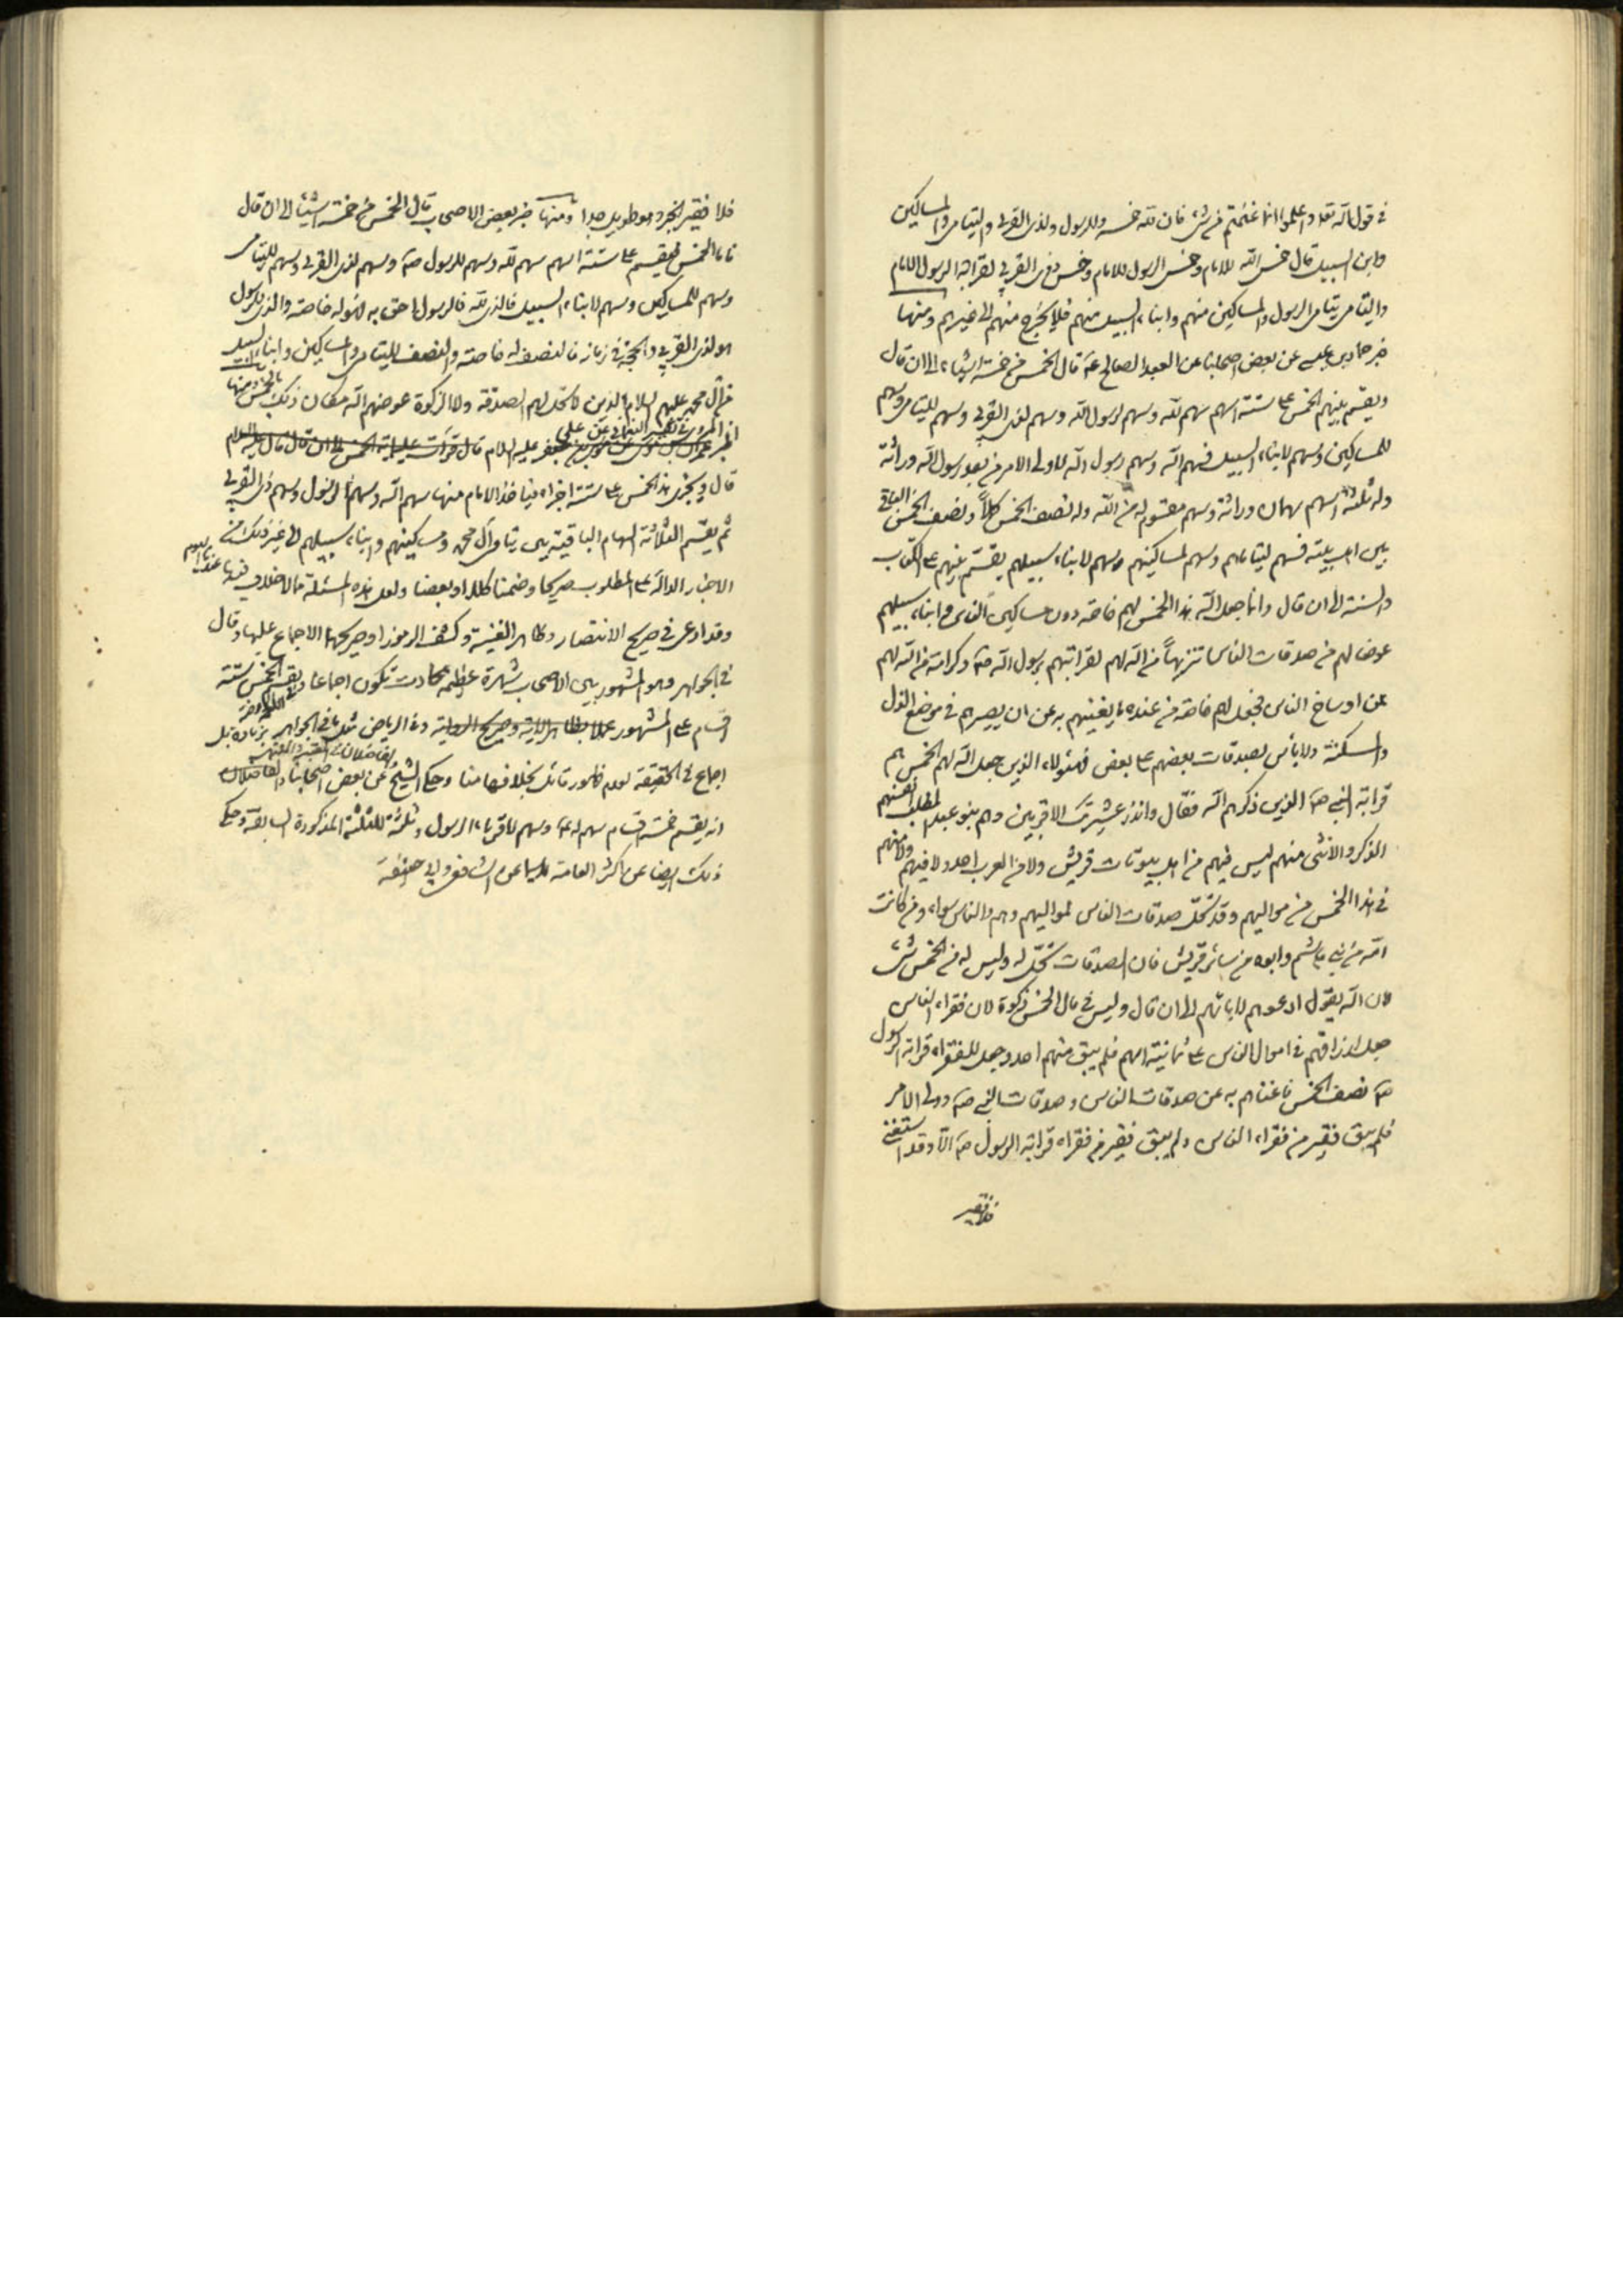 في قول الله تعالى واعلموا انما غنمتم من شئ فان لله خمسه وللرسول ولذى القربى واليتامى والمساكين
وابن السبيل قال خمس الله للامام وخمس الرسول للامام وخمس ذوى القربى لقرابة الرسول الامام
واليتامى يتامى الرسول والمساكين منهم وابناء السبيل منهم فلا يخرج منهم الى غيرهم ومنها
خبر حماد بن عيسى عن بعض اصحابنا عن العبد الصالح ع قال الخمس من خمسة اشياء الى ان قال
ويقسم بينهم الخمس على ستة اسهم سهم لله وسهم لرسول الله وسهم لذى القربى وسهم لليتامى وسهم
للمساكين وسهم لابناء السبيل فسهم الله وسهم رسول الله لاولى الامر من بعد رسول الله وراثة
وله ثلثة اسهم سهمان وراثة وسهم مقسوم له من الله وله نصف الخمس كملاً ونصف الخمس الباقى
بين اهل بيته فسهم ليتاماهم وسهم لمساكينهم وسهم لابناء سبيلهم يقسم بينهم على الكتاب
والسنة الى ان قال وانما جعل الله هذا الخمس لهم خاصة دون مساكين الناس وابناء سبيلهم
عوضا لهم من صدقات الناس تنزيهاً من الله لهم لقرابتهم برسول الله ص وكرامة من الله لهم
عن اوساخ الناس فجعل لهم خاصة من عنده ما يغنيهم به عن ان يصيرهم في موضع الذل
والمسكنة ولا باس بصدقات بعضهم على بعض فهؤلاء الذين جعل الله لهم الخمس هم
قرابة النبي ص الذين ذكرهم الله فقال وانذر عشيرتك الاقربين وهم بنو عبد المطلب انفسهم
الذكر والانثى منهم ليس فيهم من اهل بيوتات قريش ولا من العرب احد ولا فيهم ولا منهم
في هذا الخمس من مواليهم وقد تحل صدقات الناس لمواليهم وهم والناس سواء ومن كانت
امه من بني هاشم وابوه من سائر قريش فان الصدقات تحل له وليس له من الخمس شئ
لان الله يقول ادعوهم لابائهم الى ان قال وليس في مال الخمس زكوة لان فقراء الناس
جعل ارزاقهم في اموال الناس على ثمانية اسهم فلم يبق منهم احد وجعل للفقراء قرابة الرسول
ص نصف الخمس فاغناهم به عن صدقات الناس وصدقات النبي ص وولى الامر
فلم يبق فقير من فقراء الناس ولم يبق فقير من فقراء قرابة الرسول ص الا وقد استغنى
فلا فقير
فلا فقير الخبر وهو طويل جدا ومنها خبر بعض الاصحاب قال الخمس من خمسة اشياء الى ان قال
فاما الخمس فيقسم على ستة اسهم سهم لله وسهم للرسول ص وسهم لذى القربى وسهم لليتامى
وسهم للمساكين وسهم لابناء السبيل فالذى لله فالرسول احق به فهو له خاصة والذى للرسول
هو لذى القربى والحجة في زمانه فالنصف له خاصة والنصف لليتامى والمساكين وابناء السبيل
من آل محمد عليهم السلام الذين لا تحل لهم الصدقة ولا الزكوة عوضهم الله مكان ذلك بالخمس ومنها
المروى في تفسير النعماني عن علي
عليه السلام
قال ويجزى هذا الخمس على ستة اجزاء فياخذ الامام منها سهم الله وسهم الرسول وسهم ذى القربى
ثم يقسم الثلاثة السهام الباقية بين يتامى آل محمد ومساكينهم وابناء سبيلهم الى غير ذلك من
الاخبار الدالة على المطلوب صريحا وضمنا كلا او بعضا ولعل هذه المسئلة مما لا خلاف فيها عندنا
وقد ادعى في صريح الانتصار وظاهر الغنية وكشف الرموز او صريحهما الاجماع عليها وقال
في الجواهر وهو المشهور بين الاصحاب شهرة عظيمة كادت تكون اجماعا ويقسم الخمس ستة
اقسام على المشهور وفي الرياض مثل ما في الجواهر بزيادة بل
اجماع في الحقيقة لعدم ظهور قائل بخلافها منا وحكى الشيخ عن بعض اصحابنا
انه يقسم خمسة اقسام سهم له ص وسهم لاقرباء الرسول وثلثة للثلثة المذكورة السابقة وحكى
ذلك ايضا عن اكثر العامة لا سيما عن الشافعي وابى حنيفة